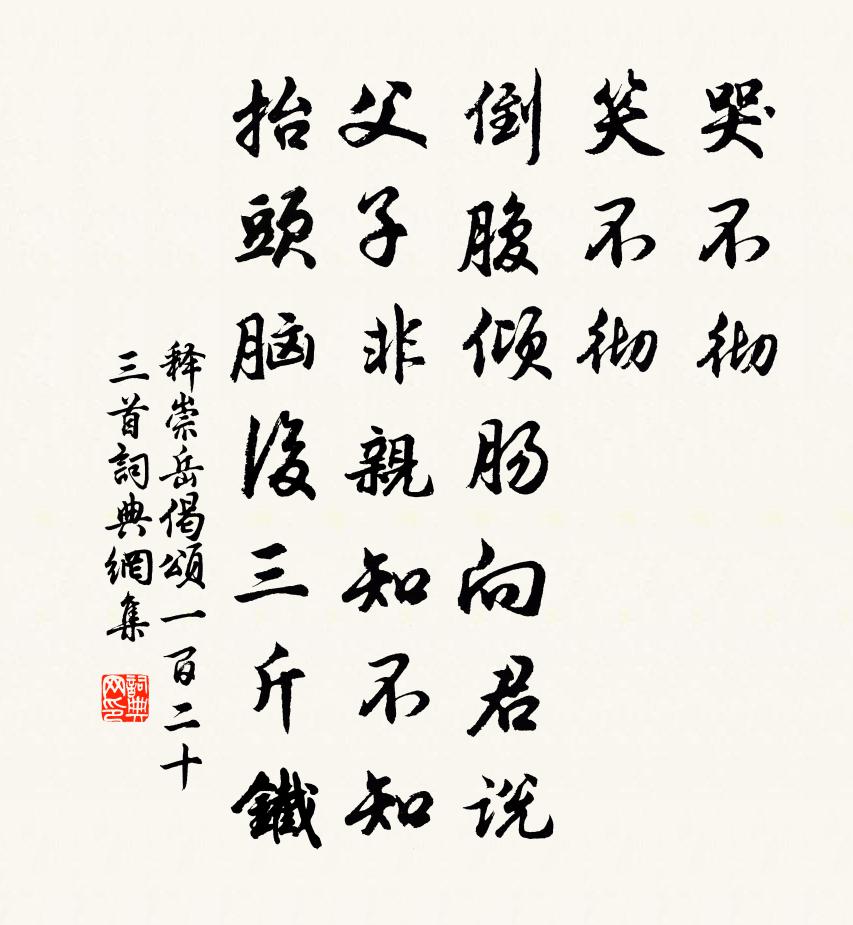 哭不彻
笑不彻
倒腹倾肠向君说
父子非親知不知
抬頭脑後三斤鐵
释崇岳偈頌一百二十
三首詞典網集
詞典
网印